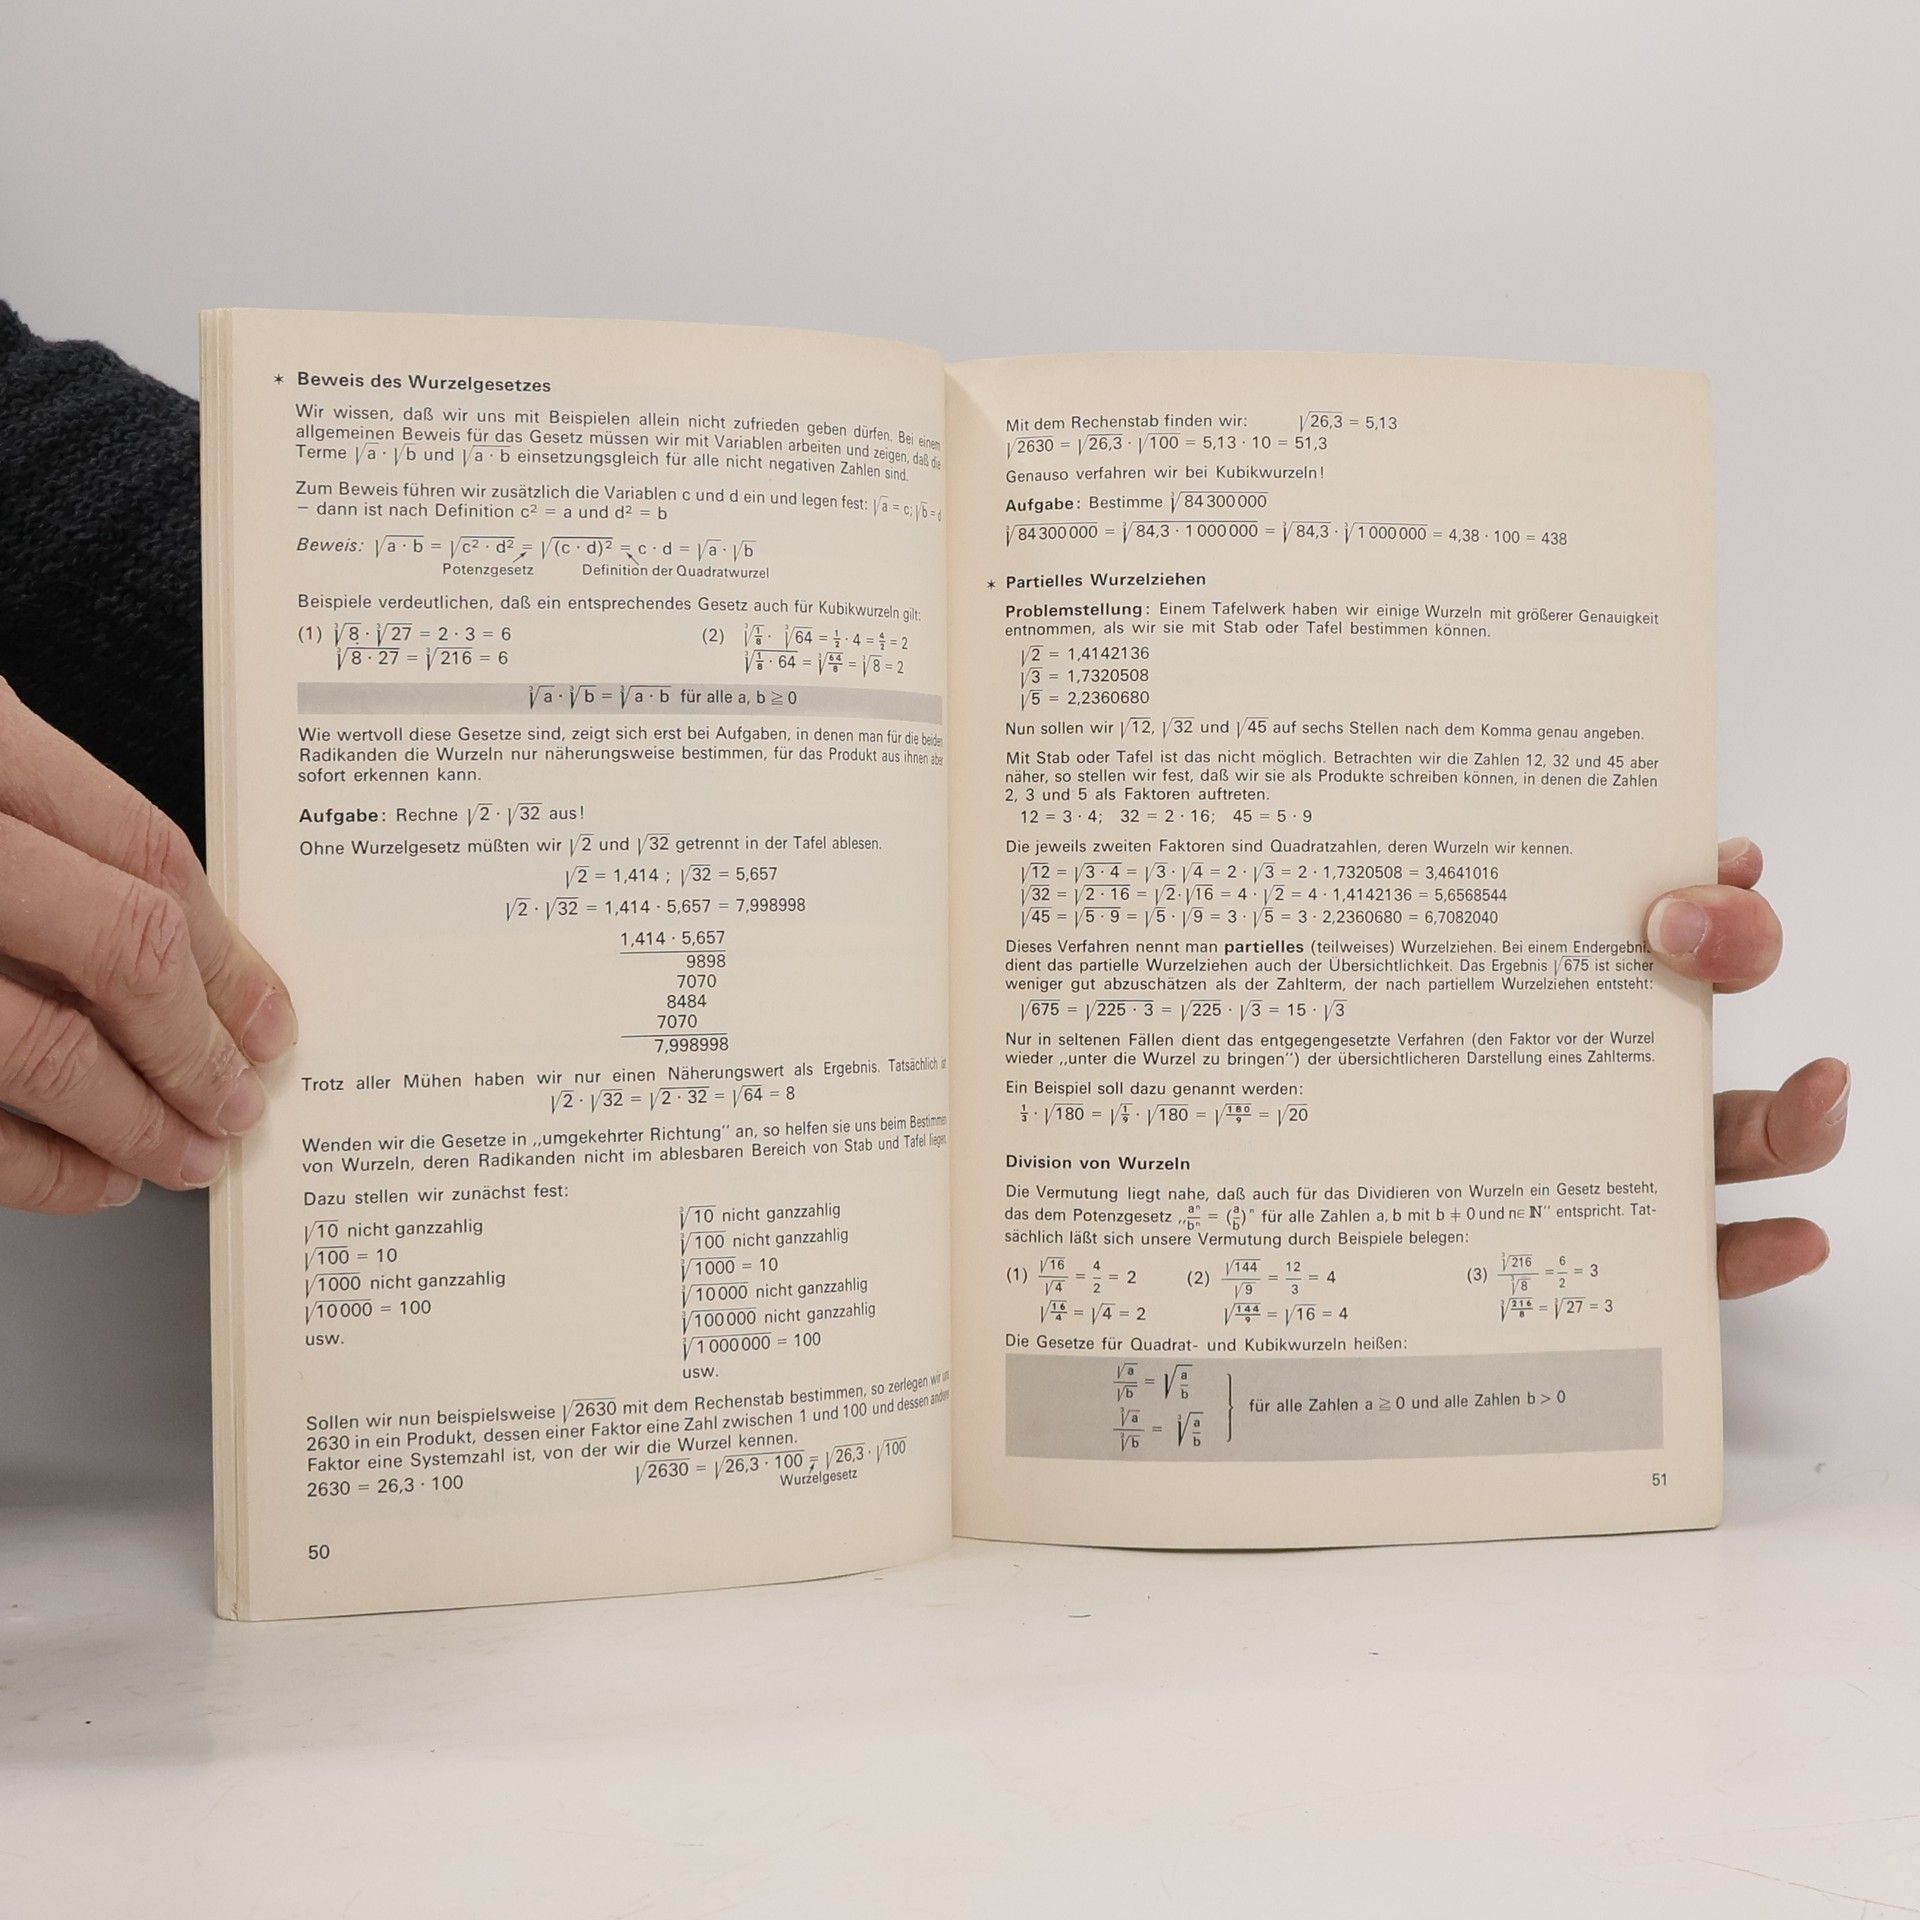 * Beweis des Wurzelgesetzes
Wir wissen, daß wir uns mit Beispielen allein nicht zufrieden geben dürfen. Bei einem
allgemeinen Beweis für das Gesetz müssen wir mit Variablen arbeiten und zeigen, daß die
Terme √a · √b und √a · b einsetzungsgleich für alle nicht negativen Zahlen sind.
Zum Beweis führen wir zusätzlich die Variablen c und d ein und legen fest: √a = c; √b = d
– dann ist nach Definition c² = a und d² = b
Beweis: √(a · b) = √(c² · d²) = √((c · d)²) = c · d = √a · √b
Potenzgesetz Definition der Quadratwurzel
Beispiele verdeutlichen, daß ein entsprechendes Gesetz auch für Kubikwurzeln gilt:
(1) ∛8 · ∛27 = 2 · 3 = 6 (2) ∛(1/8) · ∛64 = 1/2 · 4 = 4/2 = 2
∛(8 · 27) = ∛216 = 6 ∛(1/8 · 64) = ∛(64/8) = ∛8 = 2
∛a · ∛b = ∛(a · b) für alle a, b ≧ 0
Wie wertvoll diese Gesetze sind, zeigt sich erst bei Aufgaben, in denen man für die beiden
Radikanden die Wurzeln nur näherungsweise bestimmen, für das Produkt aus ihnen aber
sofort erkennen kann.
Aufgabe: Rechne √2 · √32 aus!
Ohne Wurzelgesetz müßten wir √2 und √32 getrennt in der Tafel ablesen.
√2 = 1,414 ; √32 = 5,657
√2 · √32 = 1,414 · 5,657 = 7,998998
1,414 · 5,657
9898
7070
8484
7070
7,998998
Trotz aller Mühen haben wir nur einen Näherungswert als Ergebnis. Tatsächlich ist
√2 · √32 = √(2 · 32) = √64 = 8
Wenden wir die Gesetze in „umgekehrter Richtung“ an, so helfen sie uns beim Bestimmen
von Wurzeln, deren Radikanden nicht im ablesbaren Bereich von Stab und Tafel liegen.
Dazu stellen wir zunächst fest:
√10 nicht ganzzahlig
√100 = 10
√1000 nicht ganzzahlig
√10000 = 100
usw.
∛10 nicht ganzzahlig
∛100 nicht ganzzahlig
∛1000 = 10
∛10000 nicht ganzzahlig
∛100000 nicht ganzzahlig
∛1000000 = 100
usw.
Sollen wir nun beispielsweise √2630 mit dem Rechenstab bestimmen, so zerlegen wir uns
2630 in ein Produkt, dessen einer Faktor eine Zahl zwischen 1 und 100 und dessen anderer
Faktor eine Systemzahl ist, von der wir die Wurzel kennen.
2630 = 26,3 · 100 √2630 = √(26,3 · 100) = √26,3 · √100
Wurzelgesetz
50
Mit dem Rechenstab finden wir: √26,3 = 5,13
√2630 = √26,3 · √100 = 5,13 · 10 = 51,3
Genauso verfahren wir bei Kubikwurzeln!
Aufgabe: Bestimme ∛84300000
∛84300000 = ∛(84,3 · 1000000) = ∛84,3 · ∛1000000 = 4,38 · 100 = 438
* Partielles Wurzelziehen
Problemstellung: Einem Tafelwerk haben wir einige Wurzeln mit größerer Genauigkeit
entnommen, als wir sie mit Stab oder Tafel bestimmen können.
√2 = 1,4142136
√3 = 1,7320508
√5 = 2,2360680
Nun sollen wir √12, √32 und √45 auf sechs Stellen nach dem Komma genau angeben.
Mit Stab oder Tafel ist das nicht möglich. Betrachten wir die Zahlen 12, 32 und 45 aber
näher, so stellen wir fest, daß wir sie als Produkte schreiben können, in denen die Zahlen
2, 3 und 5 als Faktoren auftreten.
12 = 3 · 4; 32 = 2 · 16; 45 = 5 · 9
Die jeweils zweiten Faktoren sind Quadratzahlen, deren Wurzeln wir kennen.
√12 = √(3 · 4) = √3 · √4 = 2 · √3 = 2 · 1,7320508 = 3,4641016
√32 = √(2 · 16) = √2 · √16 = 4 · √2 = 4 · 1,4142136 = 5,6568544
√45 = √(5 · 9) = √5 · √9 = 3 · √5 = 3 · 2,2360680 = 6,7082040
Dieses Verfahren nennt man partielles (teilweises) Wurzelziehen. Bei einem
dient das partielle Wurzelziehen auch der Übersichtlichkeit. Das Ergebnis √675 ist sicher
weniger gut abzuschätzen als der Zahlterm, der nach partiellem Wurzelziehen entsteht:
√675 = √(225 · 3) = √225 · √3 = 15 · √3
Nur in seltenen Fällen dient das entgegengesetzte Verfahren (den Faktor vor der Wurzel
wieder „unter die Wurzel zu bringen“) der übersichtlicheren Darstellung eines Zahlterms.
Ein Beispiel soll dazu genannt werden:
1/3 · √180 = √(1/9) · √180 = √(180/9) = √20
Division von Wurzeln
Die Vermutung liegt nahe, daß auch für das Dividieren von Wurzeln ein Gesetz besteht,
das dem Potenzgesetz „aⁿ/bⁿ = (a/b)ⁿ für alle Zahlen a, b mit b ≠ 0 und n∈ ℕ“ entspricht. Tat-
sächlich läßt sich unsere Vermutung durch Beispiele belegen:
(1) √16/√4 = 4/2 = 2 (2) √144/√9 = 12/3 = 4 (3) ∛216/∛8 = 6/2 = 3
√(16/4) = √4 = 2 √(144/9) = √16 = 4 ∛(216/8) = ∛27 = 3
Die Gesetze für Quadrat- und Kubikwurzeln heißen:
√a/√b = √(a/b)
∛a/∛b = ∛(a/b)
} für alle Zahlen a ≧ 0 und alle Zahlen b > 0
51